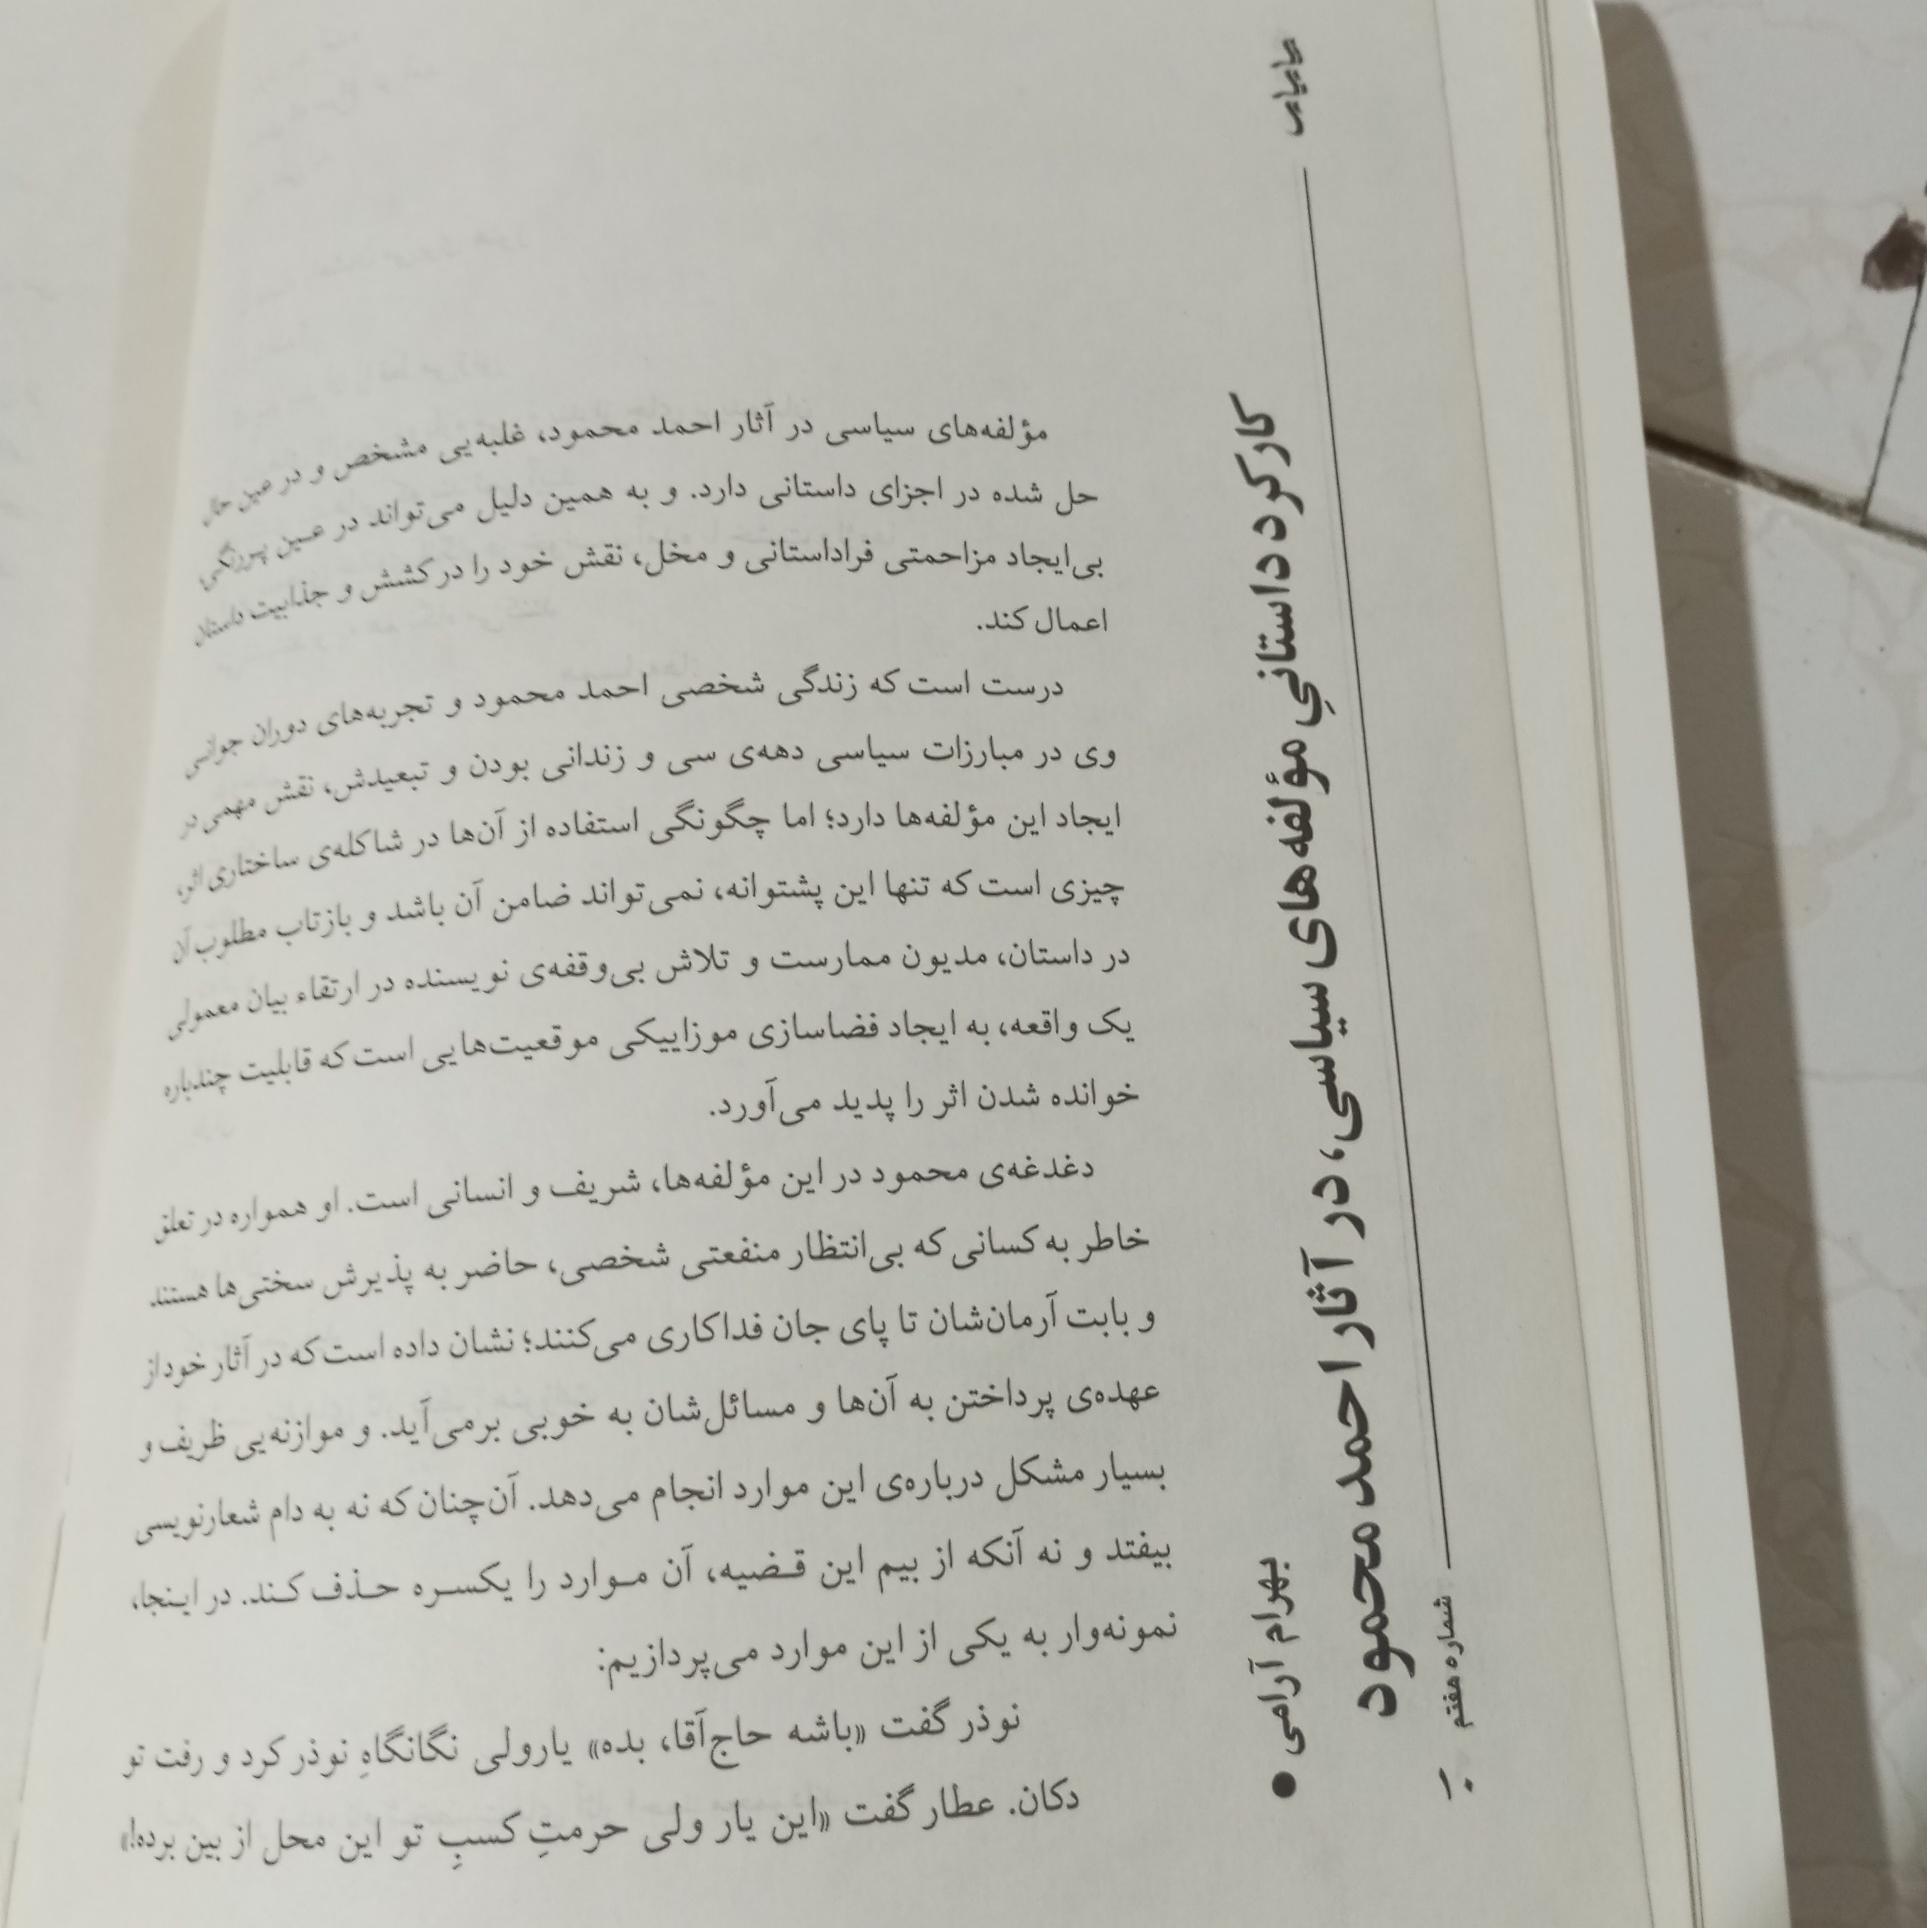 کارکرد داستانیِ مؤلفه‌های سیاسی، در آثار احمد محمود
● بهرام آرامی
مؤلفه‌های سیاسی در آثار احمد محمود، غلبه‌یی مشخص و در عین حال
حل شده در اجزای داستانی دارد. و به همین دلیل می‌تواند در عین پررنگی،
بی‌ایجاد مزاحمتی فراداستانی و مخل، نقش خود را در کشش و جذابیت داستان
اعمال کند.
درست است که زندگی شخصی احمد محمود و تجربه‌های دوران جوانی
وی در مبارزات سیاسی دهه‌ی سی و زندانی بودن و تبعیدش، نقش مهمی در
ایجاد این مؤلفه‌ها دارد؛ اما چگونگی استفاده از آن‌ها در شاکله‌ی ساختاری اثر،
چیزی است که تنها این پشتوانه، نمی‌تواند ضامن آن باشد و بازتاب مطلوب آن
در داستان، مدیون ممارست و تلاش بی‌وقفه‌ی نویسنده در ارتقاء بیان معمولی
یک واقعه، به ایجاد فضاسازی موزاییکی موقعیت‌هایی است که قابلیت چندباره
خوانده شدن اثر را پدید می‌آورد.
دغدغه‌ی محمود در این مؤلفه‌ها، شریف و انسانی است. او همواره در تعلق
خاطر به کسانی که بی‌انتظار منفعتی شخصی، حاضر به پذیرش سختی‌ها هستند
و بابت آرمان‌شان تا پای جان فداکاری می‌کنند؛ نشان داده است که در آثار خود از
عهده‌ی پرداختن به آن‌ها و مسائل‌شان به خوبی برمی‌آید. و موازنه‌یی ظریف و
بسیار مشکل درباره‌ی این موارد انجام می‌دهد. آن‌چنان که نه به دام شعارنویسی
بیفتد و نه آنکه از بیم این قـضیه، آن مـوارد را یکسـره حـذف کـند. در ایـنجا،
نمونه‌وار به یکی از این موارد می‌پردازیم:
نوذر گفت «باشه حاج‌آقا، بده» یارولی نگانگاهِ نوذر کرد و رفت تو
دکان. عطار گفت «این یار ولی حرمتِ کسبِ تو این محل از بین برده!»
شماره هفتم